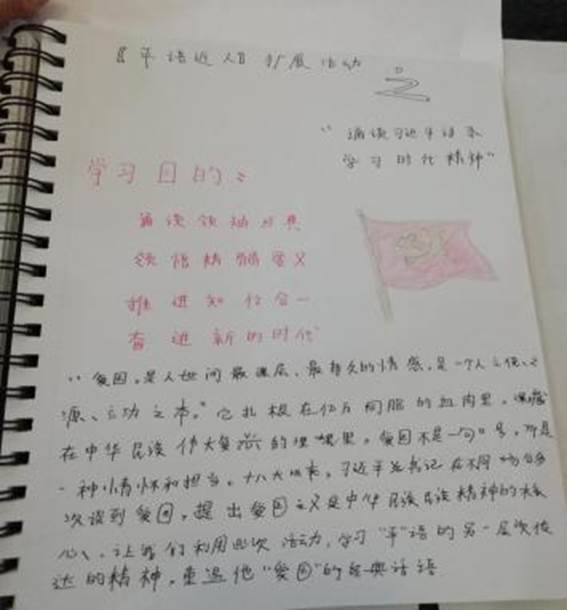 《平语近人》扩展活动
之
"诵读习近平语录
学习时代精神"
学习目的：
诵读领袖用典
领悟精髓要义
推进知行合一
奋进新的时代
"爱国，是人世间最深层、最持久的情感，是一个人立德之
源、立功之本。"它扎根在亿万同胞的血肉里，深藏
在中华民族伟大复兴的理想里，爱国不是一句口号，而是
一种情怀和担当。十八大以来，习近平总书记在不同场合多
次谈到爱国，提出爱国主义是中华民族民族精神的核
心、让我们利用此次活动，学习"平"语的另一层次传
达的精神，重温他"爱国"的经典话语